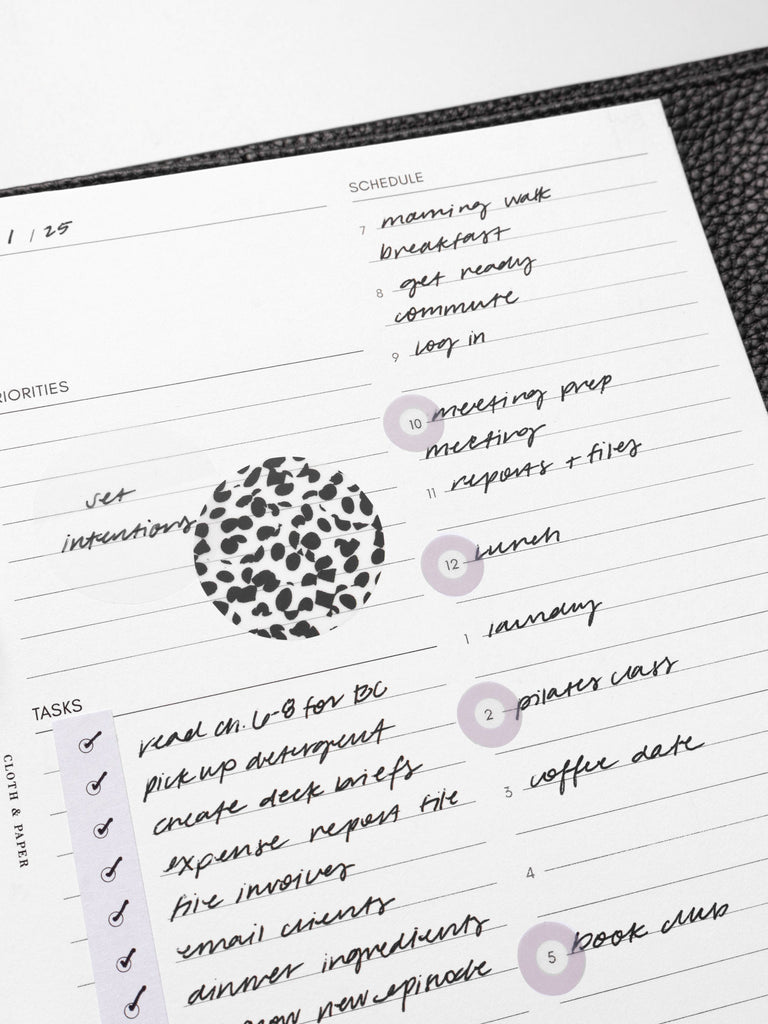 1 / 25
SCHEDULE
7 morning walk
breakfast
8 get ready
commute
9 log in
10 meeting prep
meeting
11 reports + files
12 lunch
1 laundry
2 pilates class
3 coffee date
4
5 book club
RIORITIES
set
intentions
TASKS
read ch. 6-8 for BC
pick up detergent
create deck briefs
expense report file
file invoices
email clients
dinner ingredients
new episode
CLOTH & PAPER